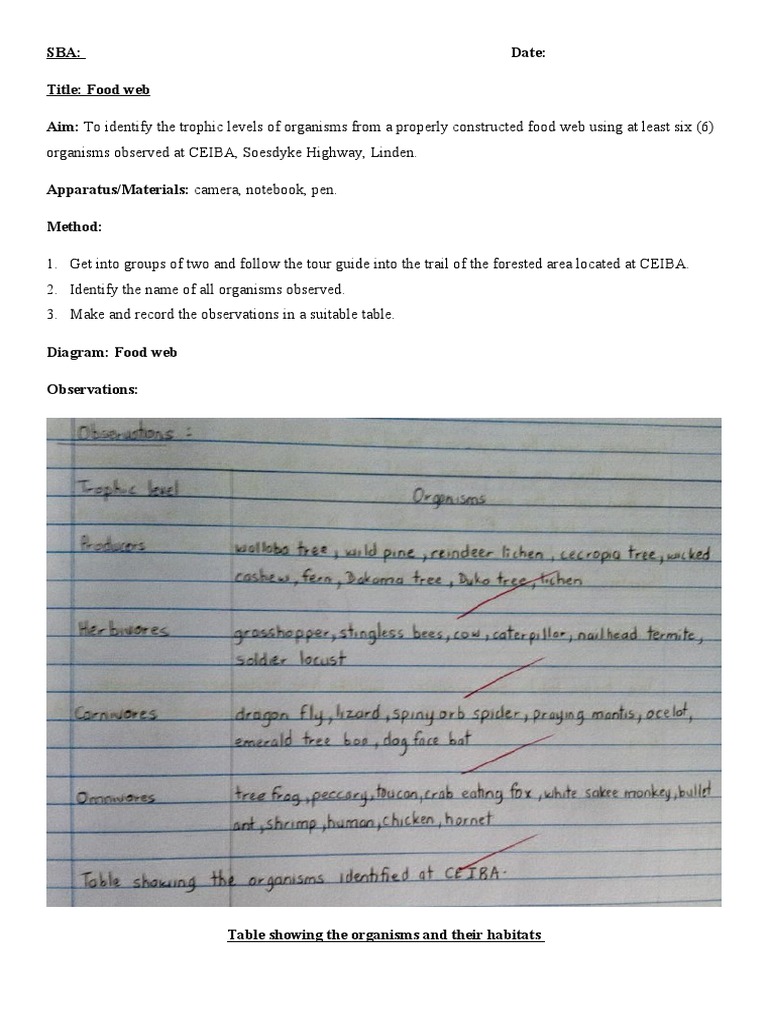 SBA: Date:
Title: Food web
Aim: To identify the trophic levels of organisms from a properly constructed food web using at least six (6)
organisms observed at CEIBA, Soesdyke Highway, Linden.
Apparatus/Materials: camera, notebook, pen.
Method:
1. Get into groups of two and follow the tour guide into the trail of the forested area located at CEIBA.
2. Identify the name of all organisms observed.
3. Make and record the observations in a suitable table.
Diagram: Food web
Observations:
Observations :
Trophic level Organisms
Producers wallaba tree, wild pine, reindeer lichen, cecropia tree, wicked
cashew, fern, Dakama tree, Duka tree, lichen
Herbivores grasshopper, stingless bees, cow, caterpillar, nailhead termite,
soldier locust
Carnivores dragon fly, lizard, spiny orb spider, praying mantis, ocelot,
emerald tree boa, dog face bat
Omnivores tree frog, peccary, toucan, crab eating fox, white sakee monkey, bullet
ant, shrimp, human, chicken, hornet
Table showing the organisms identified at CEIBA.
Table showing the organisms and their habitats